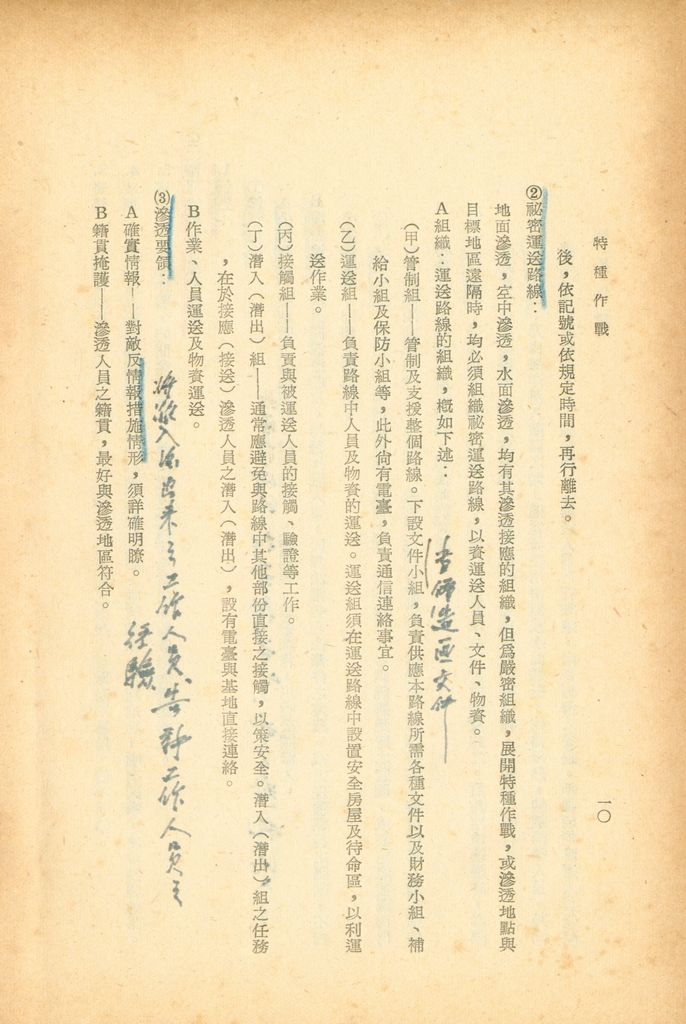 特種作戰
一〇
後，依記號或依規定時間，再行離去。
②祕密運送路線：
地面滲透，空中滲透，水面滲透，均有其滲透接應的組織，但爲嚴密組織，展開特種作戰，或滲透地點與
目標地區遠隔時，均必須組織祕密運送路線，以資運送人員、文件、物資。
A組織：運送路線的組織，概如下述：
(甲)管制組——管制及支援整個路線。下設文件小組，負責供應本路線所需各種文件以及財務小組、補
給小組及保防小組等，此外尙有電臺，負責通信連絡事宜。
(乙)運送組——負責路線中人員及物資的運送。運送組須在運送路線中設置安全房屋及待命區，以利運
送作業。
(丙)接觸組——負責與被運送人員的接觸、驗證等工作。
(丁)潛入(潛出)組——通常應避免與路線中其他部份直接之接觸，以策安全。潛入(潛出)組之任務
，在於接應(接送)滲透人員之潛入(潛出)，設有電臺與基地直接連絡。
B作業、人員運送及物資運送。
(3)滲透要領：
A確實情報——對敵反情報措施情形，須詳確明瞭。
B籍貫掩護——滲透人員之籍貫，最好與滲透地區符合。
造 文件
入 出來之工作人員 工作人員之
經驗